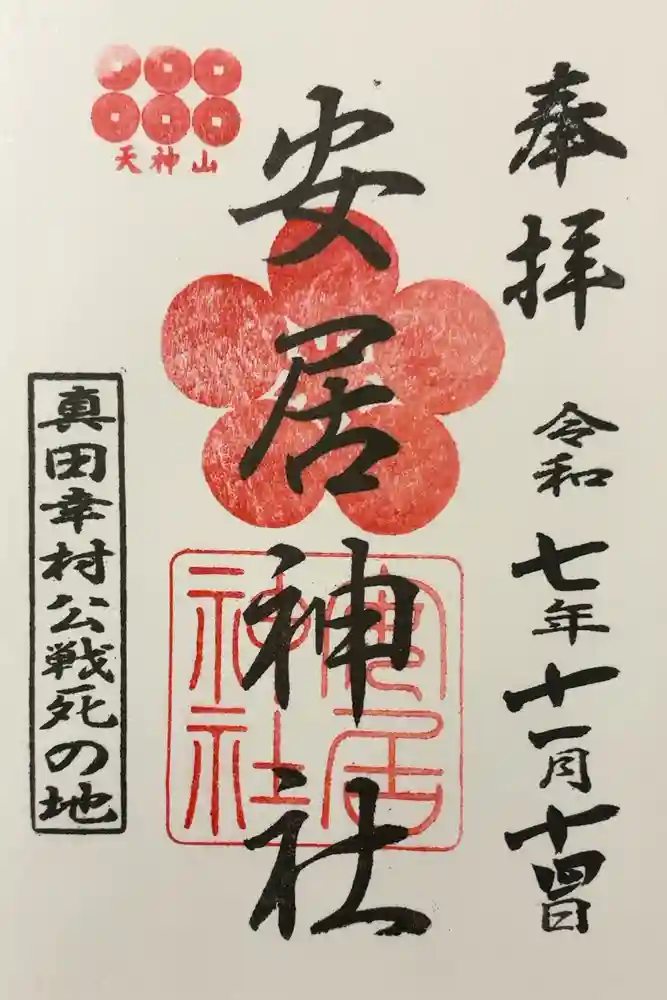 奉拝
令和七年十一月十四日
安居神社
安居
神社
天神山
真田幸村公戦死の地